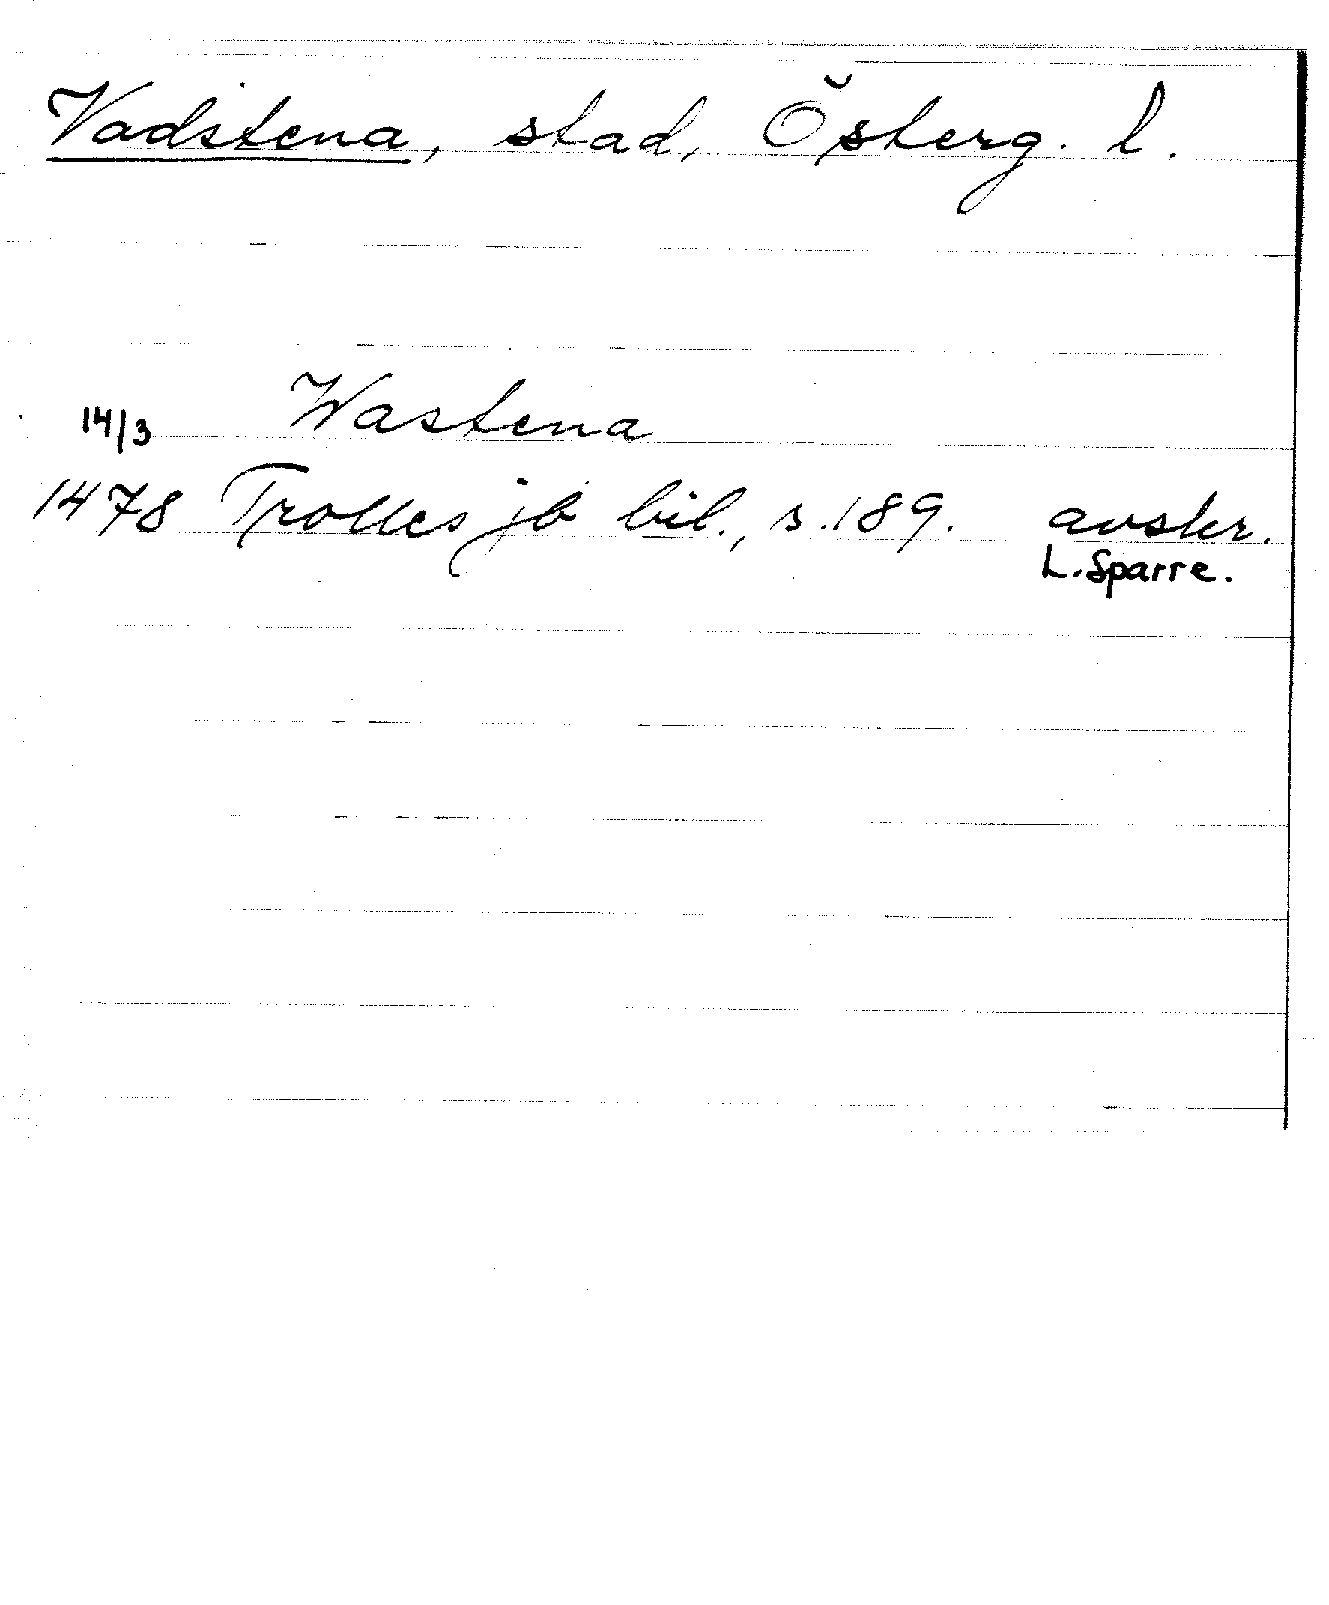 Vadstena, stad, Österg. l.
14/3 Wastena
1478 Trolles jb bil., s. 189. avskr.
L. Sparre.